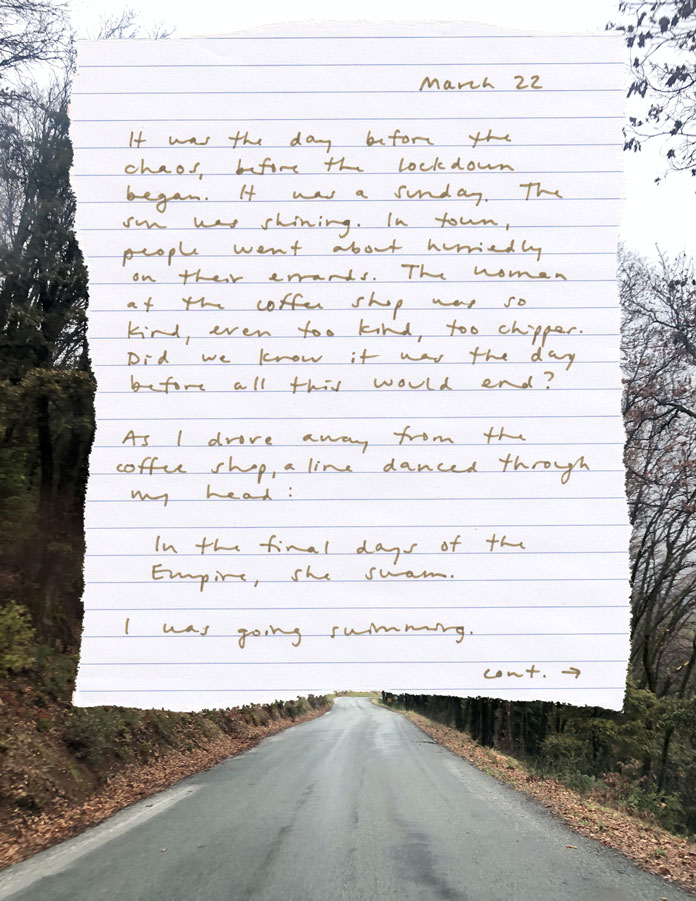 March 22
It was the day before the
chaos, before the lockdown
began. It was a sunday. The
sun was shining. In town,
people went about hurriedly
on their errands. The woman
at the coffee shop was so
kind, even too kind, too chipper.
Did we know it was the day
before all this would end?
As I drove away from the
coffee shop, a line danced through
my head:
In the final days of the
Empire, she swam.
I was going swimming.
cont. →